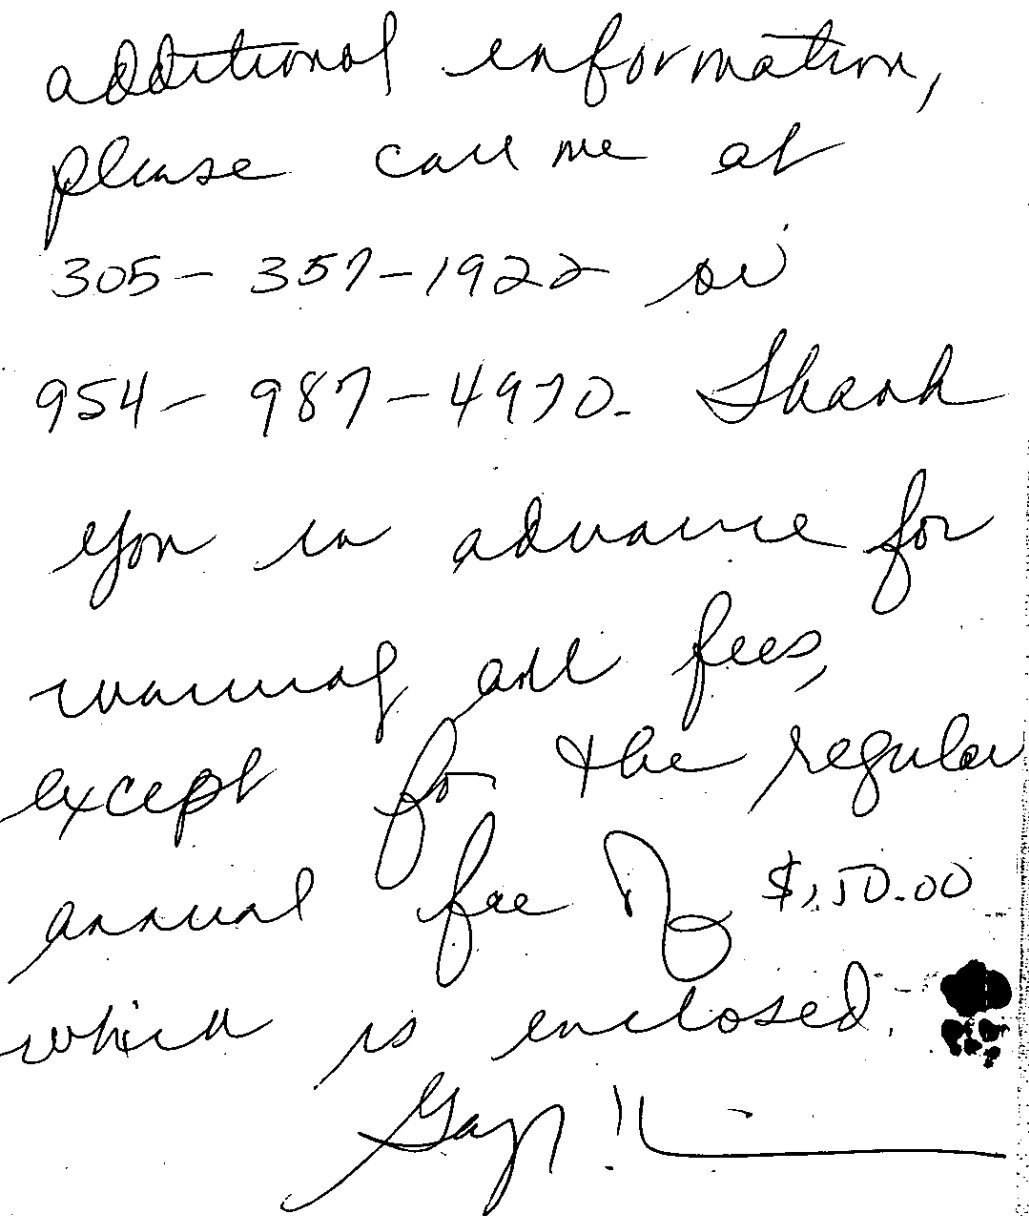 additional information,
please call me at
305-357-1922 or
954-987-4970. Thank
you in advance for
waiving all fees,
except for the regular
annual fee of $150.00
which is enclosed.